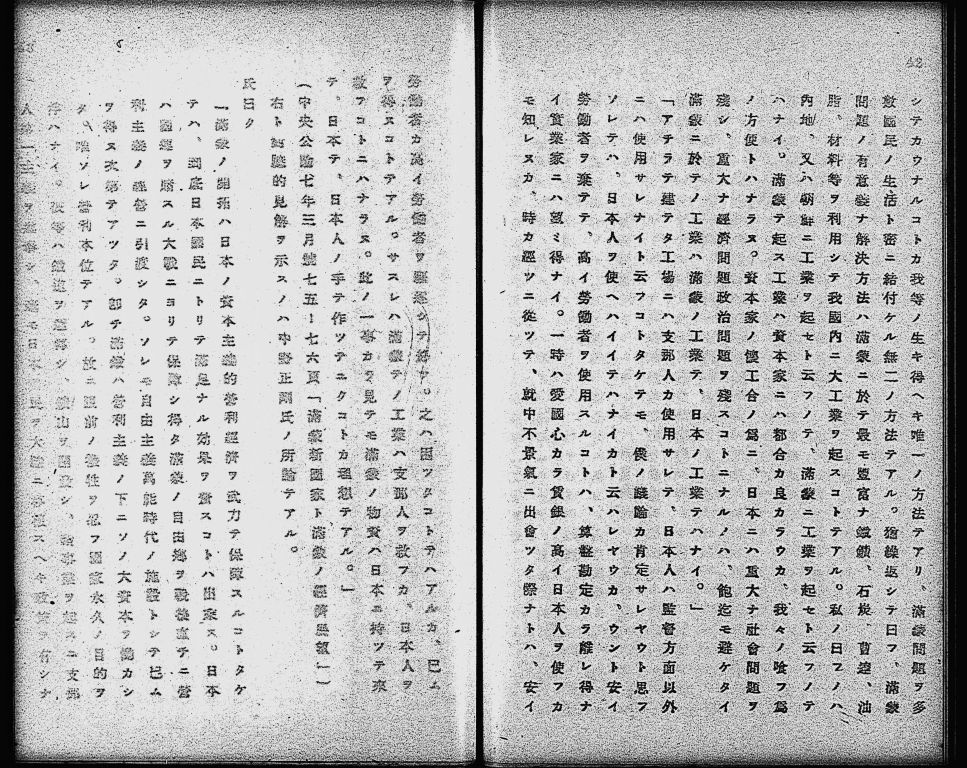 42
シテカウナルコトカ我等ノ生キ得ヘキ唯一ノ方法テアリ、滿蒙問題ヲ多
數國民ノ生活ト密ニ結付ケル無二ノ方法テアル。猶繰返シテ曰フ、滿蒙
問題ノ有意義ナ解決方法ハ滿蒙ニ於テ最モ豐富ナ鐵鑛、石炭、曹達、油
脂、材料等ヲ利用シテ我國内ニ大工業ヲ起スコトテアル。私ノ曰フノハ
内地、又ハ朝鮮ニ工業ヲ起セト云フノテ、滿蒙ニ工業ヲ起セト云フノテ
ハナイ。滿蒙テ起ス工業ハ資本家ニハ都合カ良カラウカ、我々ノ喰フ爲
ノ方便トハナラヌ。資本家ノ懷工合ノ爲ニ、日本ニハ重大ナ社會問題ヲ
殘シ、重大ナ經濟問題政治問題ヲ殘スコトニナルノハ、飽迄モ避ケタイ
滿蒙ニ於テノ工業ハ滿蒙ノ工業テ、日本ノ工業テハナイ。」
「アテラテ建テタ工場ニハ支那人カ使用サレテ、日本人ハ監督方面以外
ニハ使用サレナイト云フコトタケテモ、僕ノ議論カ肯定サレヤウト思フ
ソレテハ、日本人ヲ使ヘハイイテハナイカト云ハレヤウカ、ウント安イ
勞働者ヲ棄テテ、高イ勞働者ヲ使用スルコトハ、算盤勘定カラ離レ得ナ
イ實業家ニハ望ミ得ナイ。一時ハ愛國心カラ賃銀ノ高イ日本人ヲ使フカ
モ知レヌカ、時カ經ツニ從ツテ、就中不景氣ニ出會ツタ際ナトハ、安イ
勞働者カ高イ勞働者ヲ驅逐シテ終フ。之ハ困ツタコトテハアルカ、已ム
ヲ得ヌコトテアル。サスレハ滿蒙テノ工業ハ支那人ヲ救フカ、日本人ヲ
救フコトニハナラヌ。此ノ一事カラ見テモ滿蒙ノ物資ハ日本ニ持ツテ來
テ、日本テ、日本人ノ手テ作ツテユクコトカ理想テアル。」
(中央公論七年三月號七五―七六頁「滿蒙新國家ト滿蒙ノ經濟展望」)
右ト對蹠的見解ヲ示スノハ中野正剛氏ノ所論テアル。
氏曰ク
「滿蒙ノ開拓ハ日本ノ資本主義的營利經濟ヲ武力テ保障スルコトタケ
テハ、到底日本國民ニトリテ滿足ナル効果ヲ齎スコトハ出來ヌ。日本
ハ國運ヲ賭スル大戰ニヨリテ保障シ得タ滿蒙ノ自由郷ヲ戰後直チニ營
利主義ノ經營ニ引渡シタ。ソレモ自由主義萬能時代ノ施設トシテ已ム
ヲ得ヌ次第テアツタ。卽チ滿鐵ハ營利主義ノ下ニソノ大資本ヲ働カシ
タ。唯ソレ營利本位テアル。故ニ眼前ノ
國家永久ノ目的ヲ
ハナイ。彼等ハ鐵道ヲ經營シ、鑛山ヲ